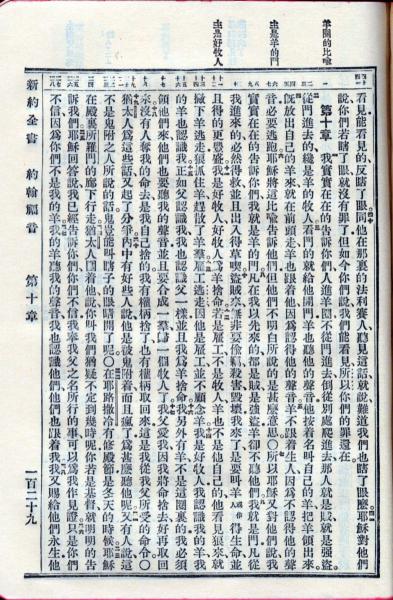 羊圈的比喻
主是羊的門
主是好牧人
看見能看見的反瞎了眼同他在那裏的法利賽人聽見這話就說難道我們也瞎了眼麼耶穌對他們
說你們若瞎了眼就沒有罪了但如今你們說我們能看見所以你們的罪還在
第十章 我實實在在的告訴你們人進羊圈不從門進去倒從別處爬進去那人就是賊就是強盜
從門進去的纔是羊的牧人看門的就給他開門羊也聽他的聲音他按着名叫自己的羊把羊領出來
既放出自己的羊來就在前頭走羊也跟着他因爲認得他的聲音羊不跟着生人因爲不認得他的聲
音必要逃跑耶穌將這比喻告訴他們但他們不明白所說的是甚麼意思〇所以耶穌又對他們說我
實實在在的告訴你們我就是羊的門凡在我以先來的都是賊是強盜羊卻不聽他們我就是門凡從
我進來的必然得救並且出入得草喫盜賊來無非要偷竊殺害毀壞我來了是要叫羊或作人得生命並
且得的更豐盛我是好牧人好牧人爲羊捨命若是雇工不是牧人羊也不是他自己的他看見狼來就
撇下羊逃走狼抓住羊趕散了羊羣雇工逃走因他是雇工並不顧念羊我是好牧人我認識我的羊我
的羊也認識我正如父認識我我也認識父一樣並且我爲羊捨命我另外有羊不是這圈裏的我必須
領他們來他們也要聽我的聲音並且要合成一羣歸一個牧人了我父愛我因我將命捨去好再取回
來沒有人奪我的命去是我自己捨的我有權柄捨了也有權柄取回來這是我從我父所受的命令〇
猶太人爲這些話又起了分爭內中有好些人說他是被鬼附着而且瘋了爲甚麼聽他呢又有人說這
不是鬼附之人所說的話鬼豈能叫瞎子的眼睛開了呢〇在耶路撒冷有修殿節是冬天的時候耶穌
在殿裏所羅門的廊下行走猶太人圍着他說你叫我們猶疑不定到幾時呢你若是基督就明明的告
訴我們耶穌回答說我已經告訴你們你們不信我奉我父之名所行的事可以爲我作見證只是你們
不信因爲你們不是我的羊我的羊聽我的聲音我也認識他們他們也跟着我我又賜給他們永生他
新約全書 約翰福音 第十章 一百二十九